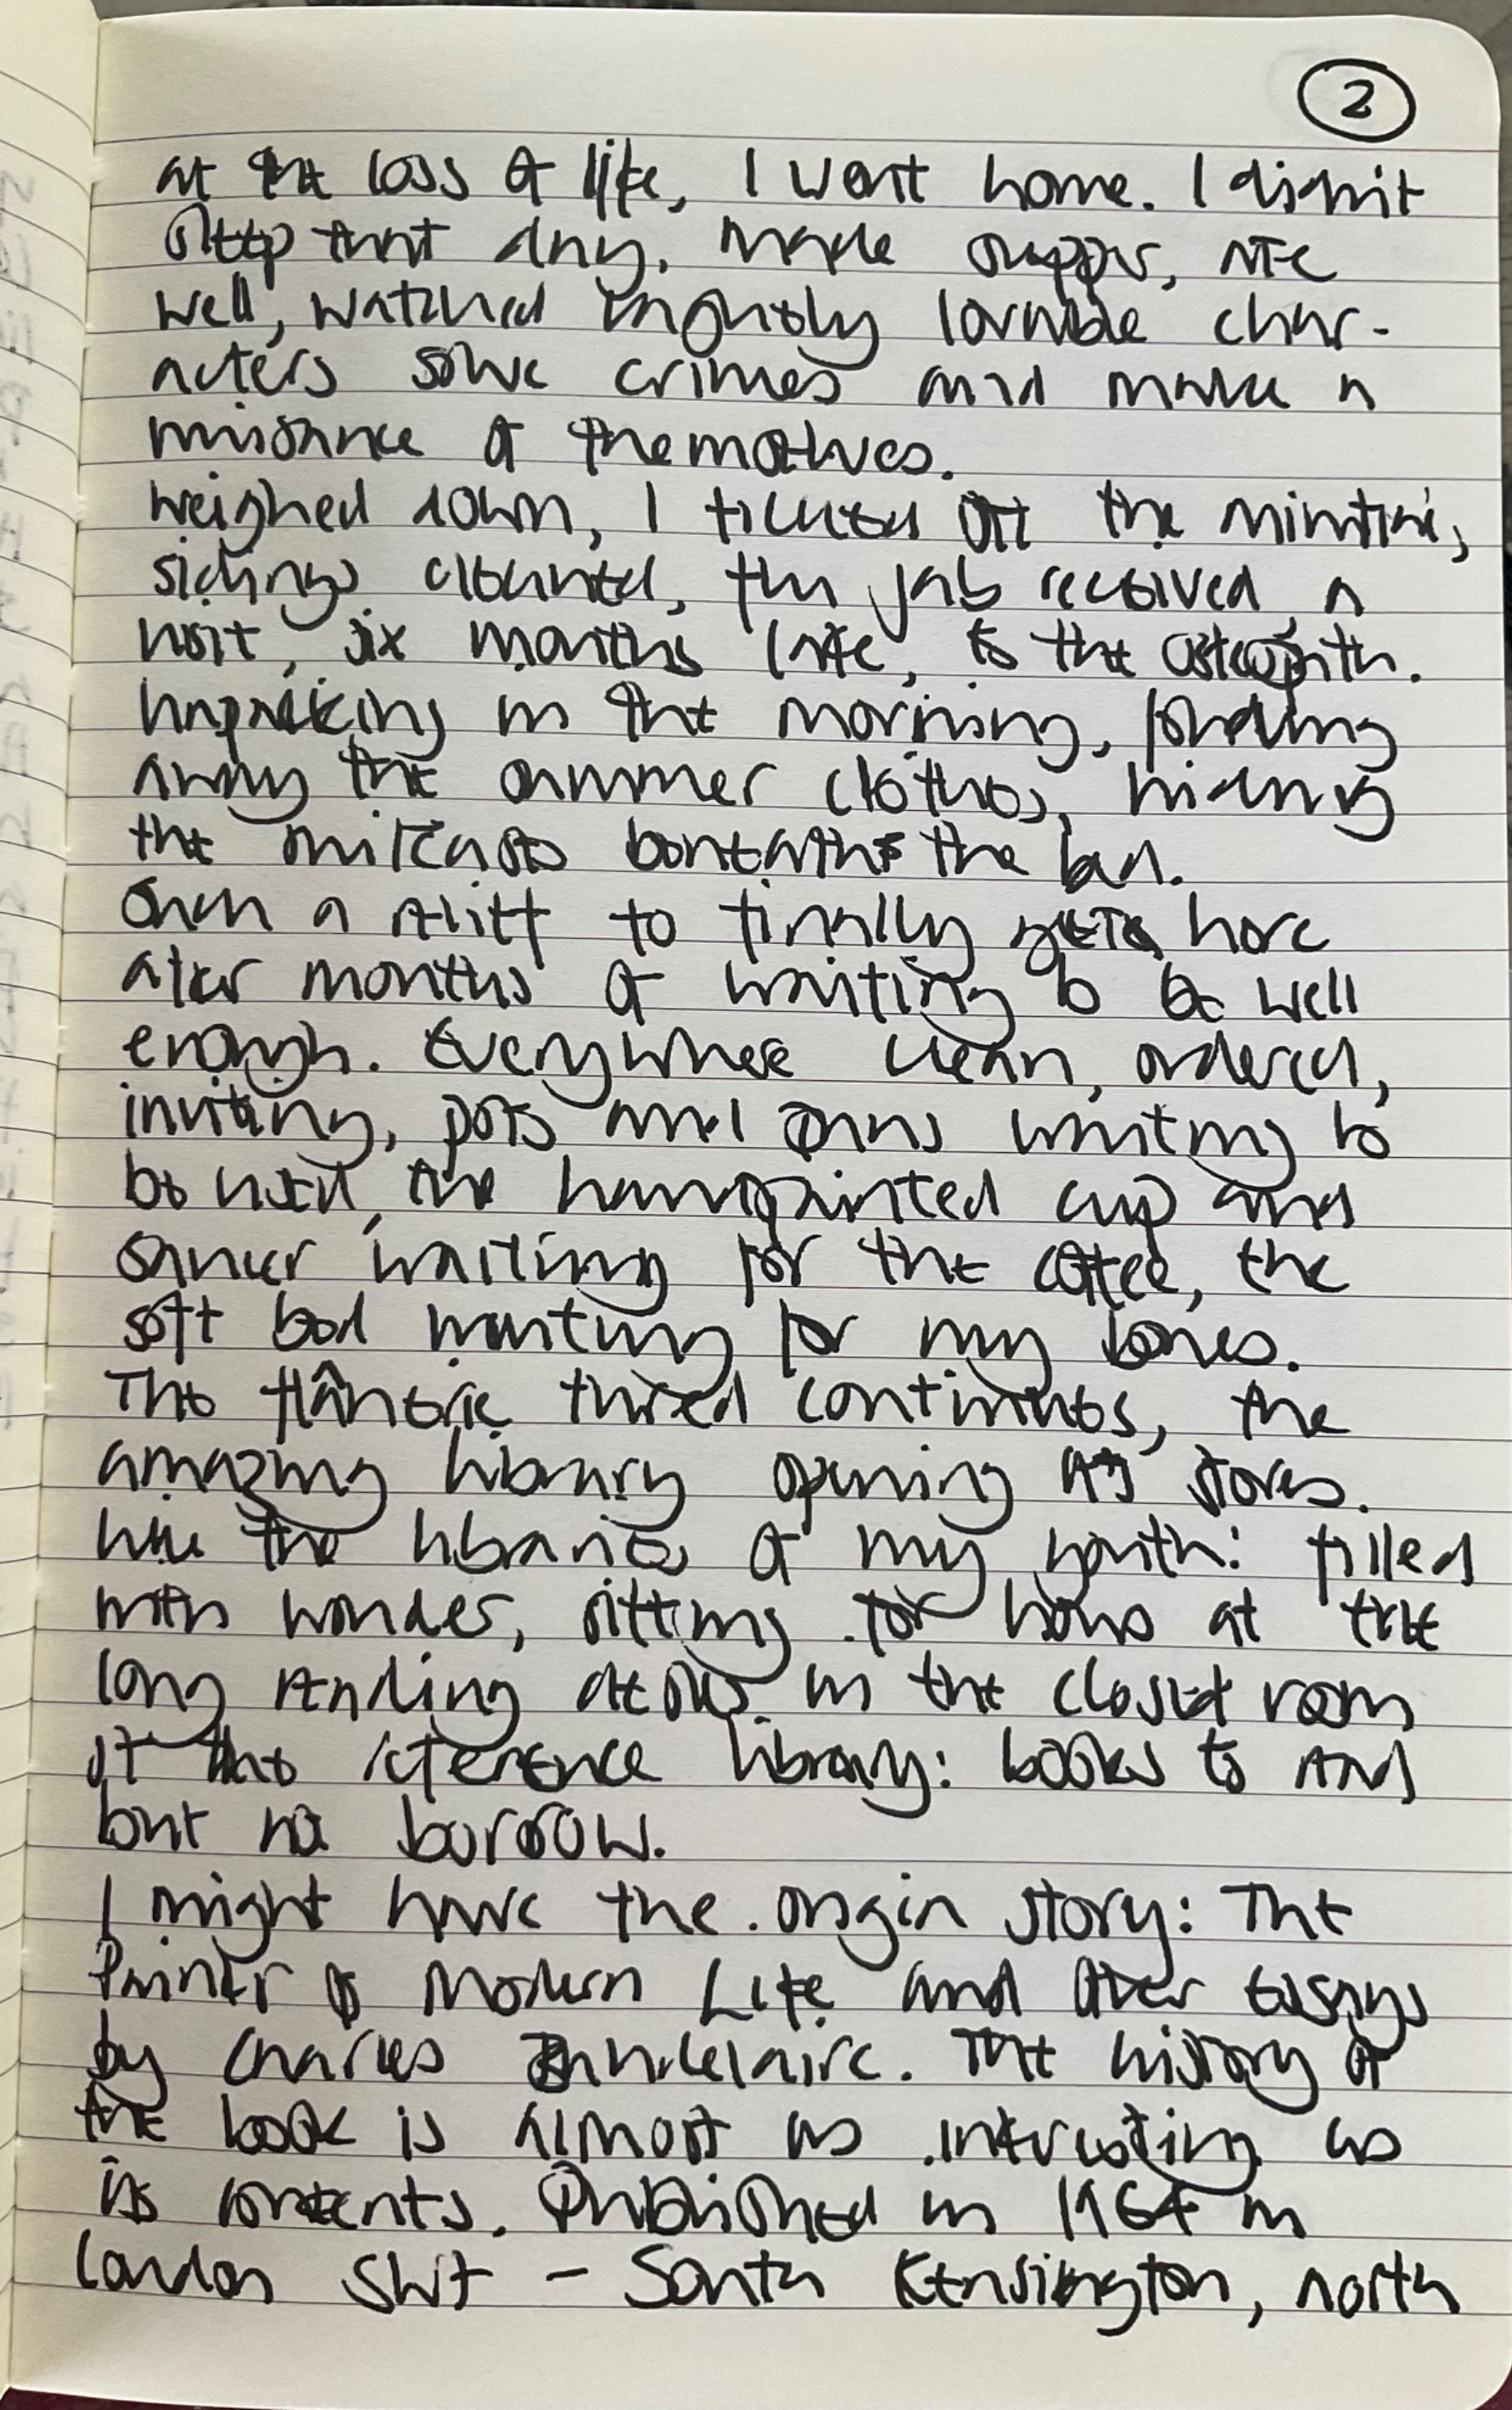 2
at the loss of life, I went home. I didn't
sleep that day. Made supper, ate
well, watched mightily lovable char-
acters solve crimes and make a
nuisance of themselves.
Weighed down, I ticked off the
sidings cleaned, the jab received, a
visit, six months late, to the osteopath.
Unpacking in the morning, folding
away the summer clothes, hiding
the suitcases beneath the bed.
Such a relief to finally get here
after months of waiting to be well
enough. Everywhere clean, ordered,
inviting, pots and pans waiting to
be used, the handpainted cup and
saucer waiting for the coffee, the
soft bed waiting for my bones.
The flânerie third continues, the
amazing library opening its stores.
Like the libraries of my youth: filled
with wonder, sitting for hours at the
long reading desks in the closed room
of the reference library: books to read
but not borrow.
I might have the origin story: The
Painter of Modern Life and Other Essays
by Charles Baudelaire. The history of
the book is almost as interesting as
its contents. Published in 1964 in
London SW7 – South Kensington, north